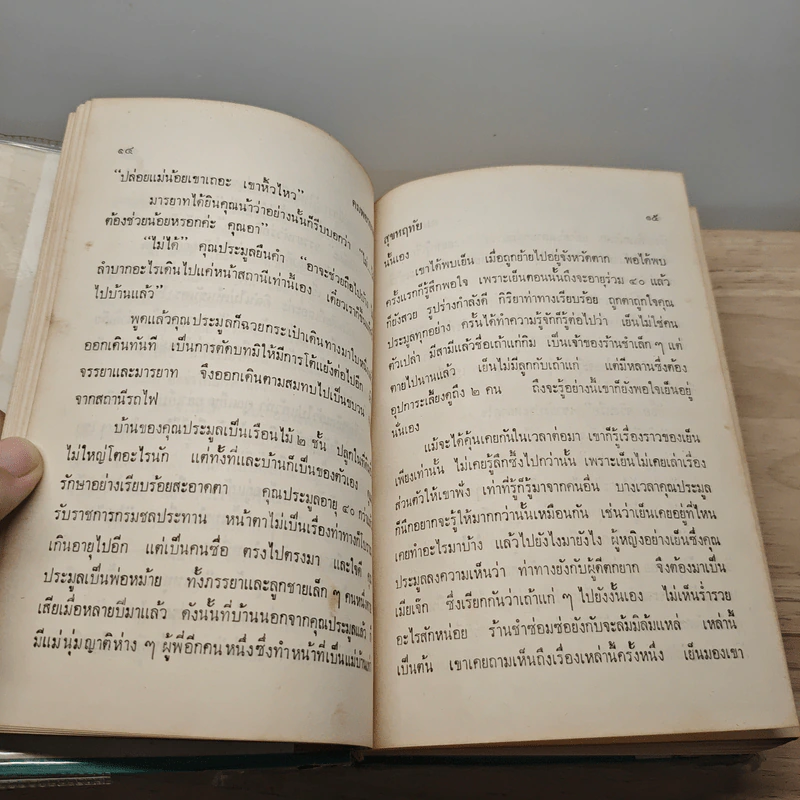 ๑๔
“ปล่อยแม่น้อยเขาเถอะ เขาหิ้วไหว”
มารยาทได้ยินคุณน้าว่าอย่างนั้นก็รีบบอกว่า
ต้องช่วยน้อยหรอกค่ะ คุณอา”
“ไม่ได้” คุณประมูลยืนคำ “อาจะช่วยถือไป
ลำบากอะไรเดินไปแค่หน้าสถานีเท่านี้เอง เดี๋ยวเราก็
ไปบ้านแล้ว”
พูดแล้วคุณประมูลก็ฉวยกระเป๋าเดินทางมาใบหนึ่ง
ออกเดินทันที เป็นการตัดบทมิให้มีการโต้แย้งต่อไปอีก
จรรยาและมารยาท จึงออกเดินตามสมทบไปเป็นขบวน
จากสถานีรถไฟ
บ้านของคุณประมูลเป็นเรือนไม้ ๒ ชั้น ปลูกในที่ดิน
ไม่ใหญ่โตอะไรนัก แต่ทั้งที่และบ้านก็เป็นของตัวเอง
รักษาอย่างเรียบร้อยสะอาดตา คุณประมูลอายุ ๔๐ กว่า
รับราชการกรมชลประทาน หน้าตาไม่เป็นเรื่องท่าทางก็
เกินอายุไปอีก แต่เป็นคนซื่อ ตรงไปตรงมา และใจดี
ประมูลเป็นพ่อหม้าย ทั้งภรรยาและลูกชายเล็ก ๆ คนหนึ่ง
เสียเมื่อหลายปีมาแล้ว ดังนั้นที่บ้านนอกจากคุณประมูลแล้ว
มีแม่นุ่มญาติห่าง ๆ ผู้พี่อีกคนหนึ่งซึ่งทำหน้าที่เป็นแม่บ้าน
สุขหฤทัย
๑๕
นั้นเอง
เขาได้พบเย็น เมื่อถูกย้ายไปอยู่จังหวัดตาก พอได้พบ
ครั้งแรกก็รู้สึกพอใจ เพราะเย็นตอนนั้นถึงจะอายุร่วม ๔๐ แล้ว
ก็ยังสวย รูปร่างกำลังดี กิริยาท่าทางเรียบร้อย ถูกตาถูกใจคุณ
ประมูลทุกอย่าง ครั้นได้ทำความรู้จักก็รู้ต่อไปว่า เย็นไม่ใช่คน
ตัวเปล่า มีสามีแล้วชื่อเถ้าแก่กิม เป็นเจ้าของร้านชำเล็ก ๆ แต่
ตายไปนานแล้ว เย็นไม่มีลูกกับเถ้าแก่ แต่มีหลานซึ่งต้อง
อุปการะเลี้ยงดูถึง ๒ คน ถึงจะรู้อย่างนี้เขาก็ยังพอใจเย็นอยู่
นั่นเอง
แม้จะได้คุ้นเคยกันในเวลาต่อมา เขาก็รู้เรื่องราวของเย็น
เพียงเท่านั้น ไม่เคยรู้ลึกซึ้งไปกว่านั้น เพราะเย็นไม่เคยเล่าเรื่อง
ส่วนตัวให้เขาฟัง เท่าที่รู้ก็รู้มาจากคนอื่น บางเวลาคุณประมูล
ก็นึกอยากจะรู้ให้มากกว่านั้นเหมือนกัน เช่นว่าเย็นเคยอยู่ที่ไหน
เคยทำอะไรมาบ้าง แล้วไปยังไงมายังไง ผู้หญิงอย่างเย็นซึ่งคุณ
ประมูลลงความเห็นว่า ท่าทางยังกับผู้ดีตกยาก จึงต้องมาเป็น
เมียเจ๊ก ซึ่งเรียกกันว่าเถ้าแก่ ๆ ไปยังงั้นเอง ไม่เห็นร่ำรวย
อะไรสักหน่อย ร้านชำซ่อมซ่อยังกับจะล้มมิล้มแหล่ เหล่านี้
เป็นต้น เขาเคยถามเห็นถึงเรื่องเหล่านี้ครั้งหนึ่ง เย็นมองเขา